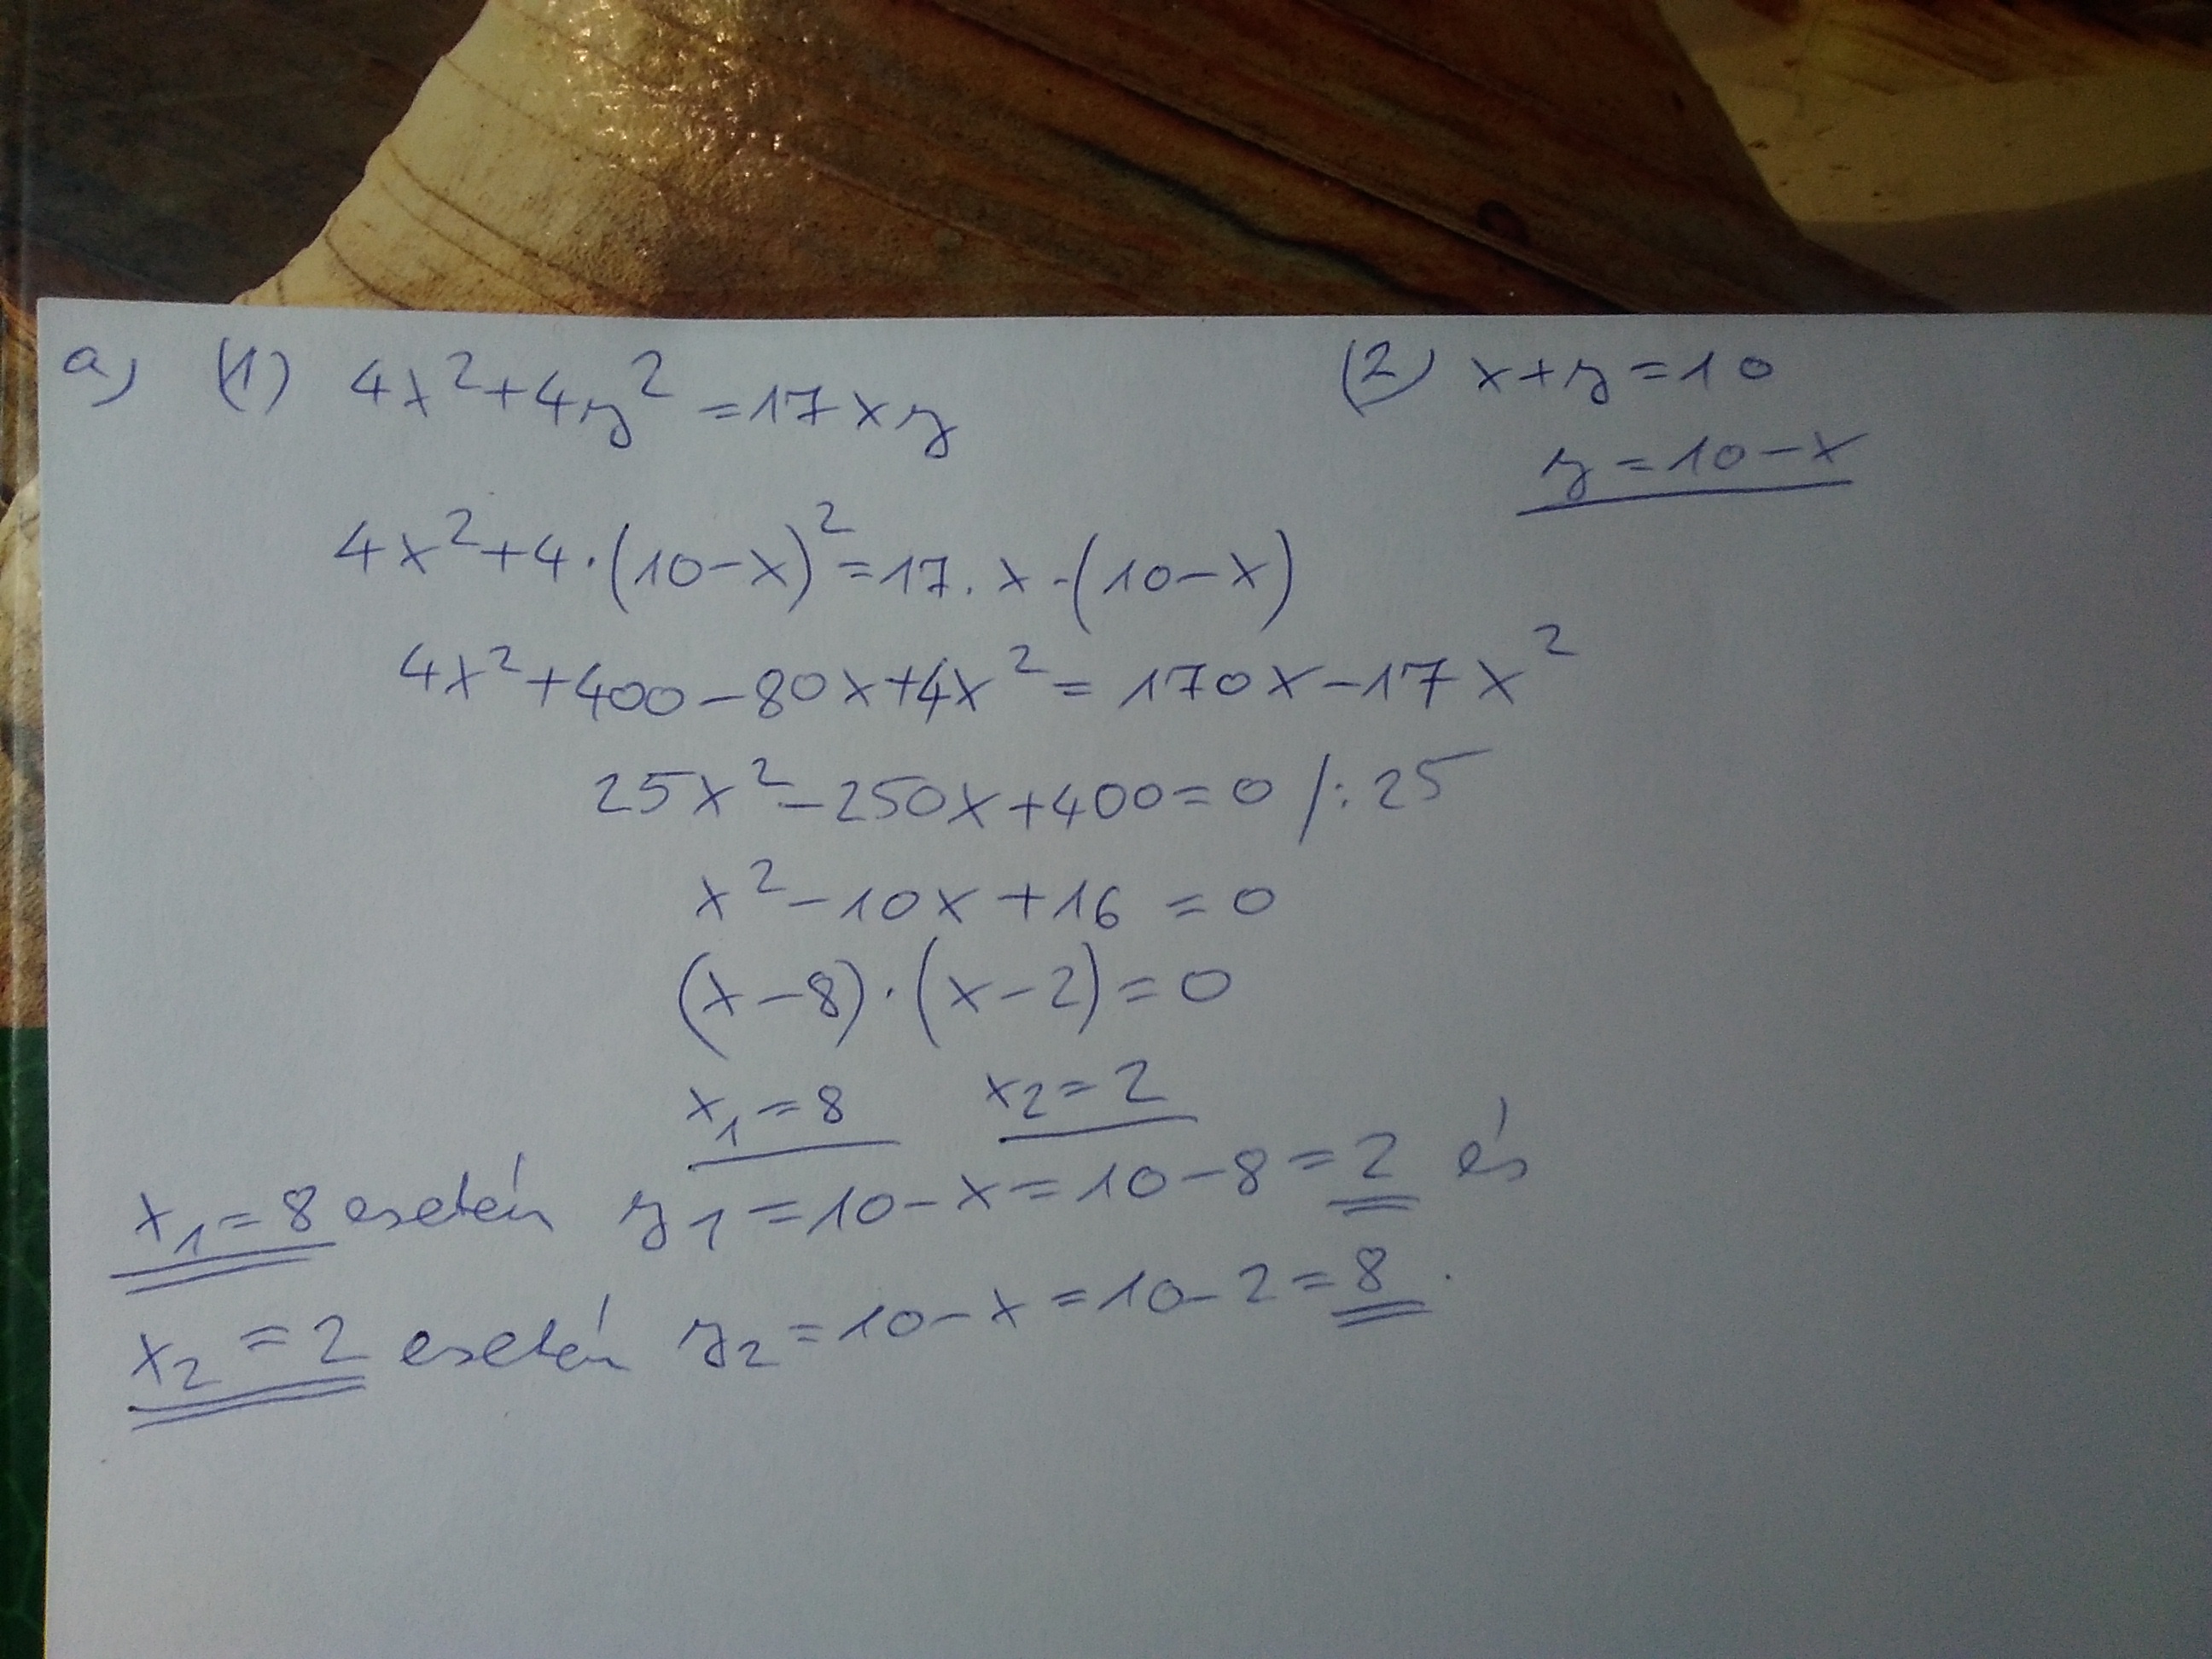 a) (1) 4x²+4y²=17xy (2) x+y=10
y=10-x
4x²+4·(10-x)²=17·x·(10-x)
4x²+400-80x+4x²=170x-17x²
25x²-250x+400=0 /:25
x²-10x+16=0
(x-8)·(x-2)=0
x₁=8 x₂=2
x₁=8 esetén y₁=10-x=10-8=2 és
x₂=2 esetén y₂=10-x=10-2=8.